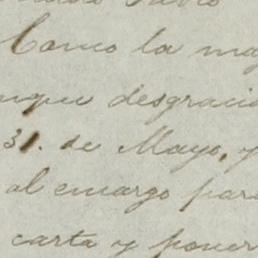 Como la ma
unque desgracia
31. de Mayo, y
al encargo para
carta y poner